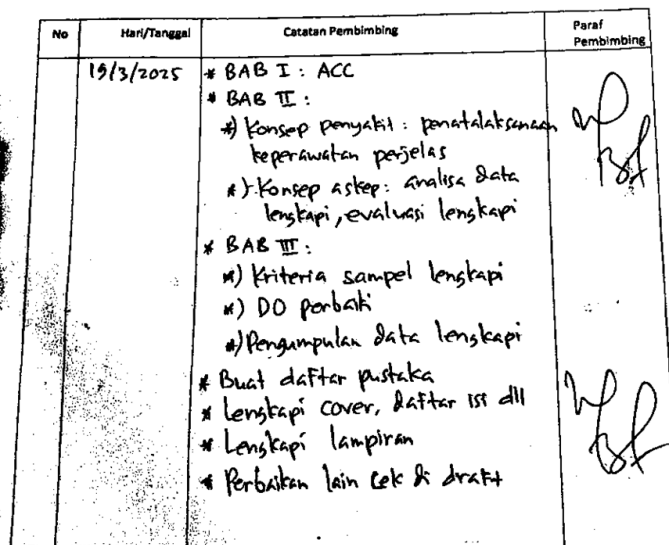 No Hari/Tanggal Catatan Pembimbing Paraf Pembimbing
19/3/2025 * BAB I : ACC
* BAB II :
*) Konsep penyakit : penatalaksanaan
keperawatan perjelas
*) Konsep askep : analisa data
lengkapi, evaluasi lengkapi
* BAB III :
*) Kriteria sampel lengkapi
*) DO perbaiki
*) Pengumpulan data lengkapi
* Buat daftar pustaka
* lengkapi cover, daftar isi dll
* Lengkapi lampiran
* Perbaikan lain cek di draft